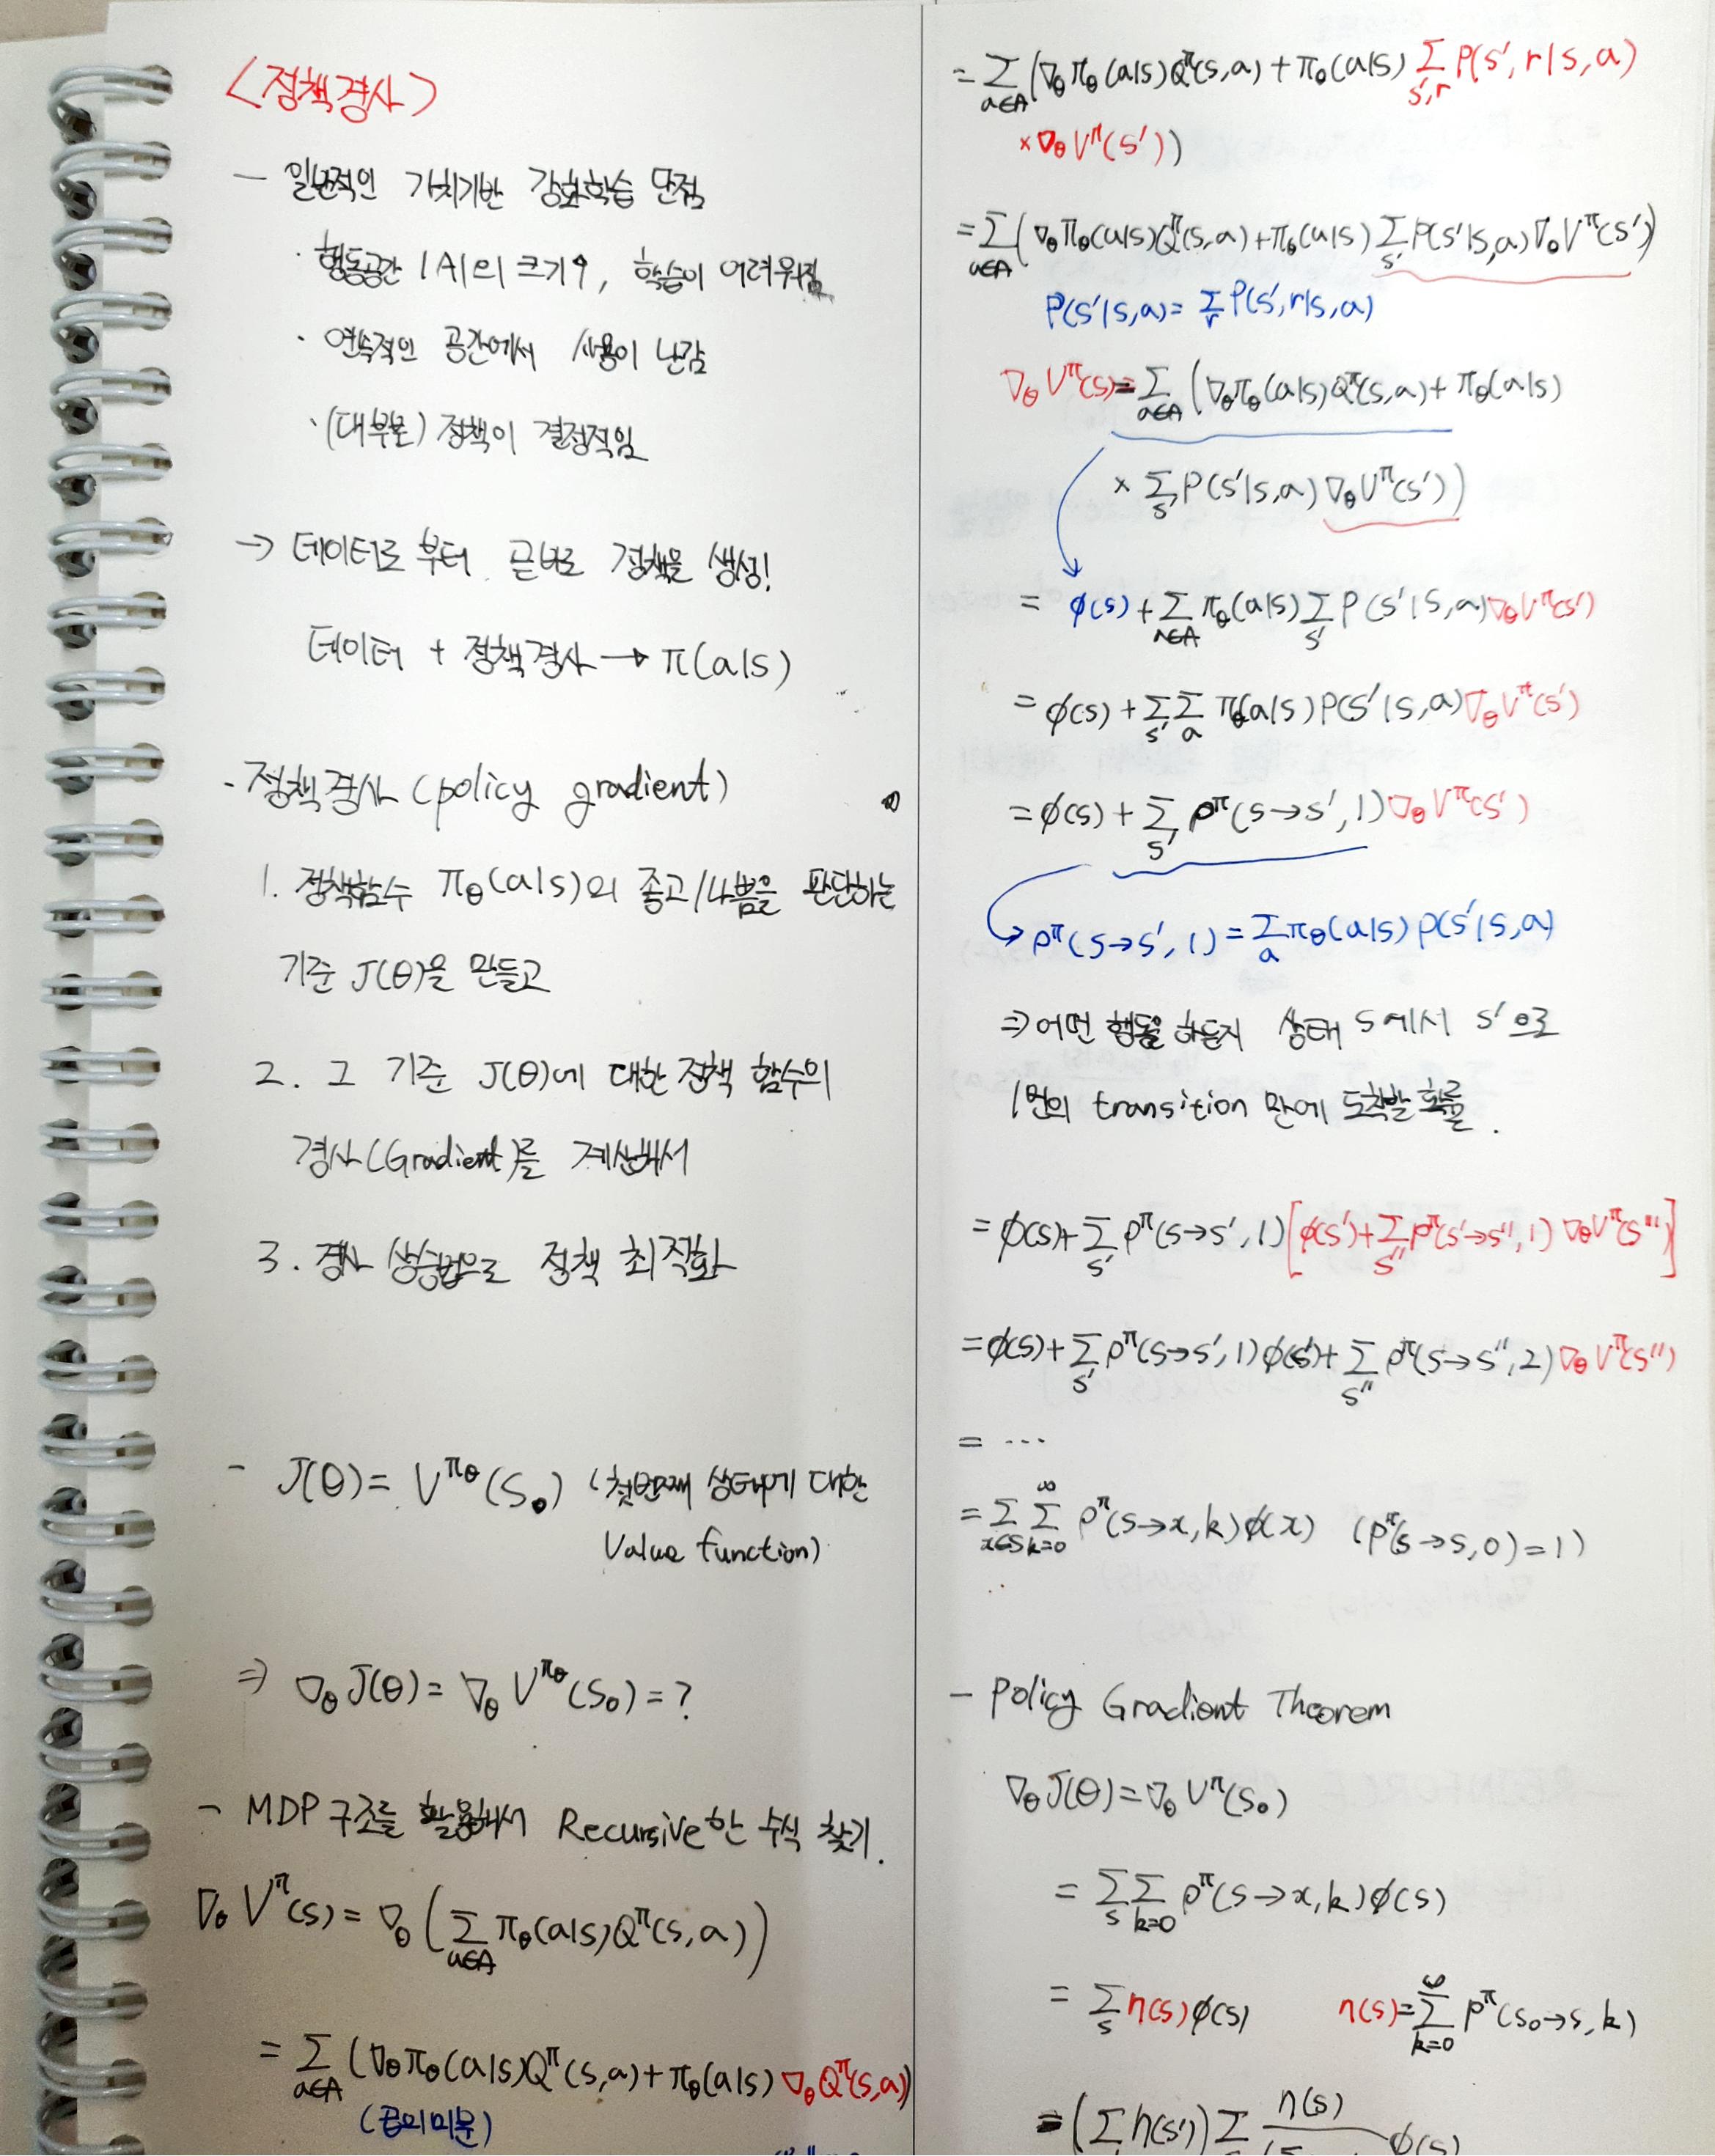 <정책경사>
- 일반적인 가치기반 강화학습 단점
· 행동공간 |A|의 크기↑, 학습이 어려워짐
· 연속적인 공간에서 사용이 난감
· (대부분) 정책이 결정적임
→ 데이터로 부터 곧바로 정책을 생성!
데이터 + 정책경사 → π(a|s)
- 정책경사 (policy gradient)
1. 정책함수 π_θ(a|s)의 좋고/나쁨을 판단하는
기준 J(θ)을 만들고
2. 그 기준 J(θ)에 대한 정책 함수의
경사(Gradient)를 계산해서
3. 경사 상승법으로 정책 최적화
- J(θ) = V^{π_θ}(s_0) (첫번째 상태에 대한
Value function)
⇒ ∇_θ J(θ) = ∇_θ V^{π_θ}(s_0) = ?
- MDP 구조를 활용해서 Recursive한 수식 찾기.
∇_θ V^π(s) = ∇_θ (∑_{a∈A} π_θ(a|s)Q^π(s,a))
= ∑_{a∈A} (∇_θ π_θ(a|s)Q^π(s,a) + π_θ(a|s) ∇_θ Q^π(s,a))
(곱의미분)
= ∑_{a∈A} (∇_θ π_θ(a|s)Q^π(s,a) + π_θ(a|s) ∑_{s',r} P(s',r|s,a)
× ∇_θ V^π(s'))
= ∑_{a∈A} (∇_θ π_θ(a|s)Q^π(s,a) + π_θ(a|s) ∑_{s'} P(s'|s,a)∇_θ V^π(s'))
P(s'|s,a) = ∑_r P(s',r|s,a)
∇_θ V^π(s) = ∑_{a∈A} (∇_θ π_θ(a|s)Q^π(s,a) + π_θ(a|s)
× ∑_{s'} P(s'|s,a) ∇_θ V^π(s'))
= φ(s) + ∑_{a∈A} π_θ(a|s) ∑_{s'} P(s'|s,a)∇_θ V^π(s')
= φ(s) + ∑_{s'} ∑_a π_θ(a|s)P(s'|s,a)∇_θ V^π(s')
= φ(s) + ∑_{s'} ρ^π(s→s',1)∇_θ V^π(s')
ρ^π(s→s',1) = ∑_a π_θ(a|s) p(s'|s,a)
⇒ 어떤 행동을 하든지 상태 s에서 s'으로
1번의 transition 만에 도착할 확률.
= φ(s) + ∑_{s'} ρ^π(s→s',1)[φ(s') + ∑_{s''} ρ^π(s'→s'',1) ∇_θ V^π(s'')]
= φ(s) + ∑_{s'} ρ^π(s→s',1)φ(s') + ∑_{s''} ρ^π(s→s'',2)∇_θ V^π(s'')
= ...
= ∑_{x∈S} ∑_{k=0}^∞ ρ^π(s→x,k)φ(x) (ρ^π(s→s,0)=1)
- Policy Gradient Theorem
∇_θ J(θ) = ∇_θ V^π(s_0)
= ∑_s ∑_{k=0} ρ^π(s→x,k)φ(s)
= ∑_s η(s)φ(s) η(s) = ∑_{k=0}^∞ ρ^π(s_0→s,k)
= (∑ η(s')) ∑ η(s) φ(s)